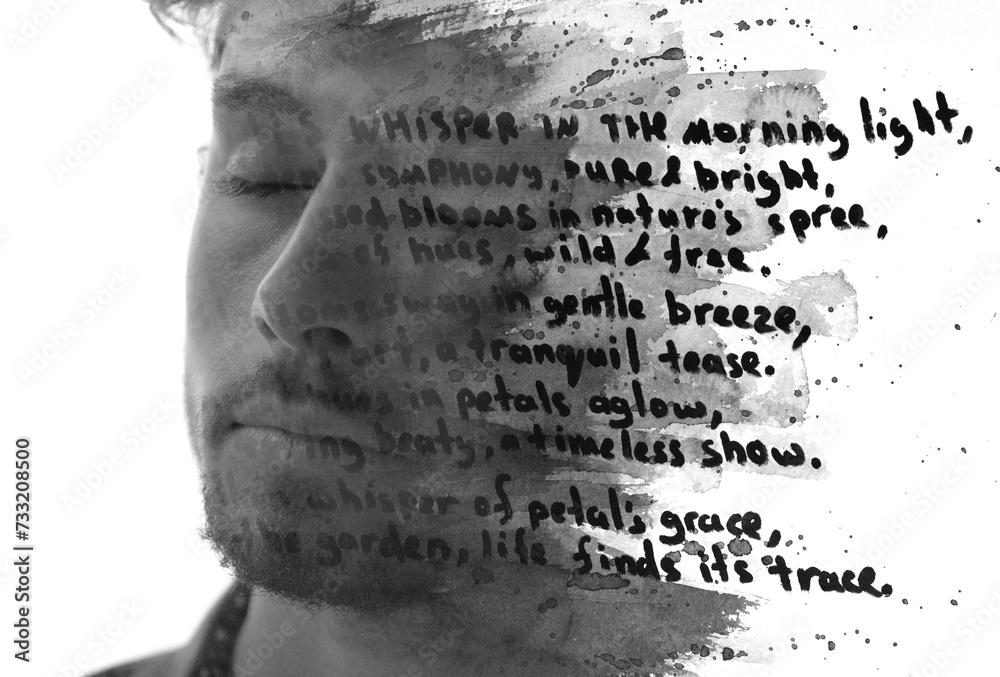 WHISPER IN THE morning light,
SYMPHONY, PURE & bright,
blooms in nature's spree,
of hues, wild & free.
sway in gentle breeze,
art, a tranquil tease.
in petals aglow,
beaty, a timeless show.
whisper of petal's grace,
the garden, life finds its trace.
Adobe Stock | #733208500